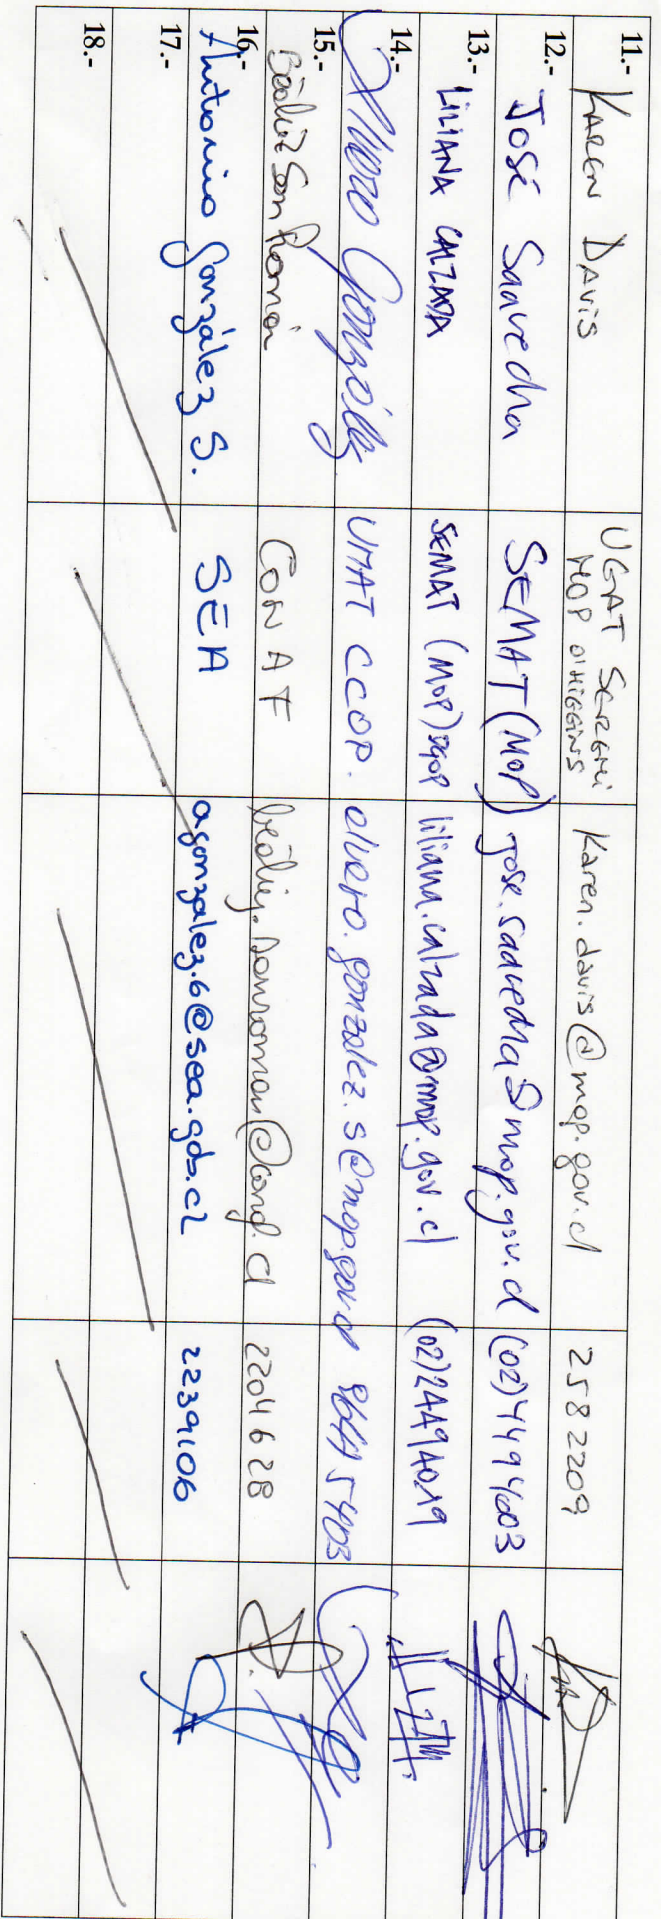 11.- KAREN DAVIS UGAT SEREMI MOP O'HIGGINS Karen.davis@mop.gov.cl 2582209
12.- JOSÉ Saavedra SEMAT (MOP) jose.saavedra@mop.gov.cl (02)4494603
13.- LILIANA CALZADA SEMAT (MOP) DGOP liliana.calzada@mop.gov.cl (02)24494019
14.- Alvaro González UMAT CCOP. alvaro.gonzalez.s@mop.gov.cl
15.- Beatriz San Román CONAF beatriz.sanroman@conaf.cl 2204628
16.- Antonio González S. SEA agonzalez.6@sea.gob.cl 2239106
17.-
18.-